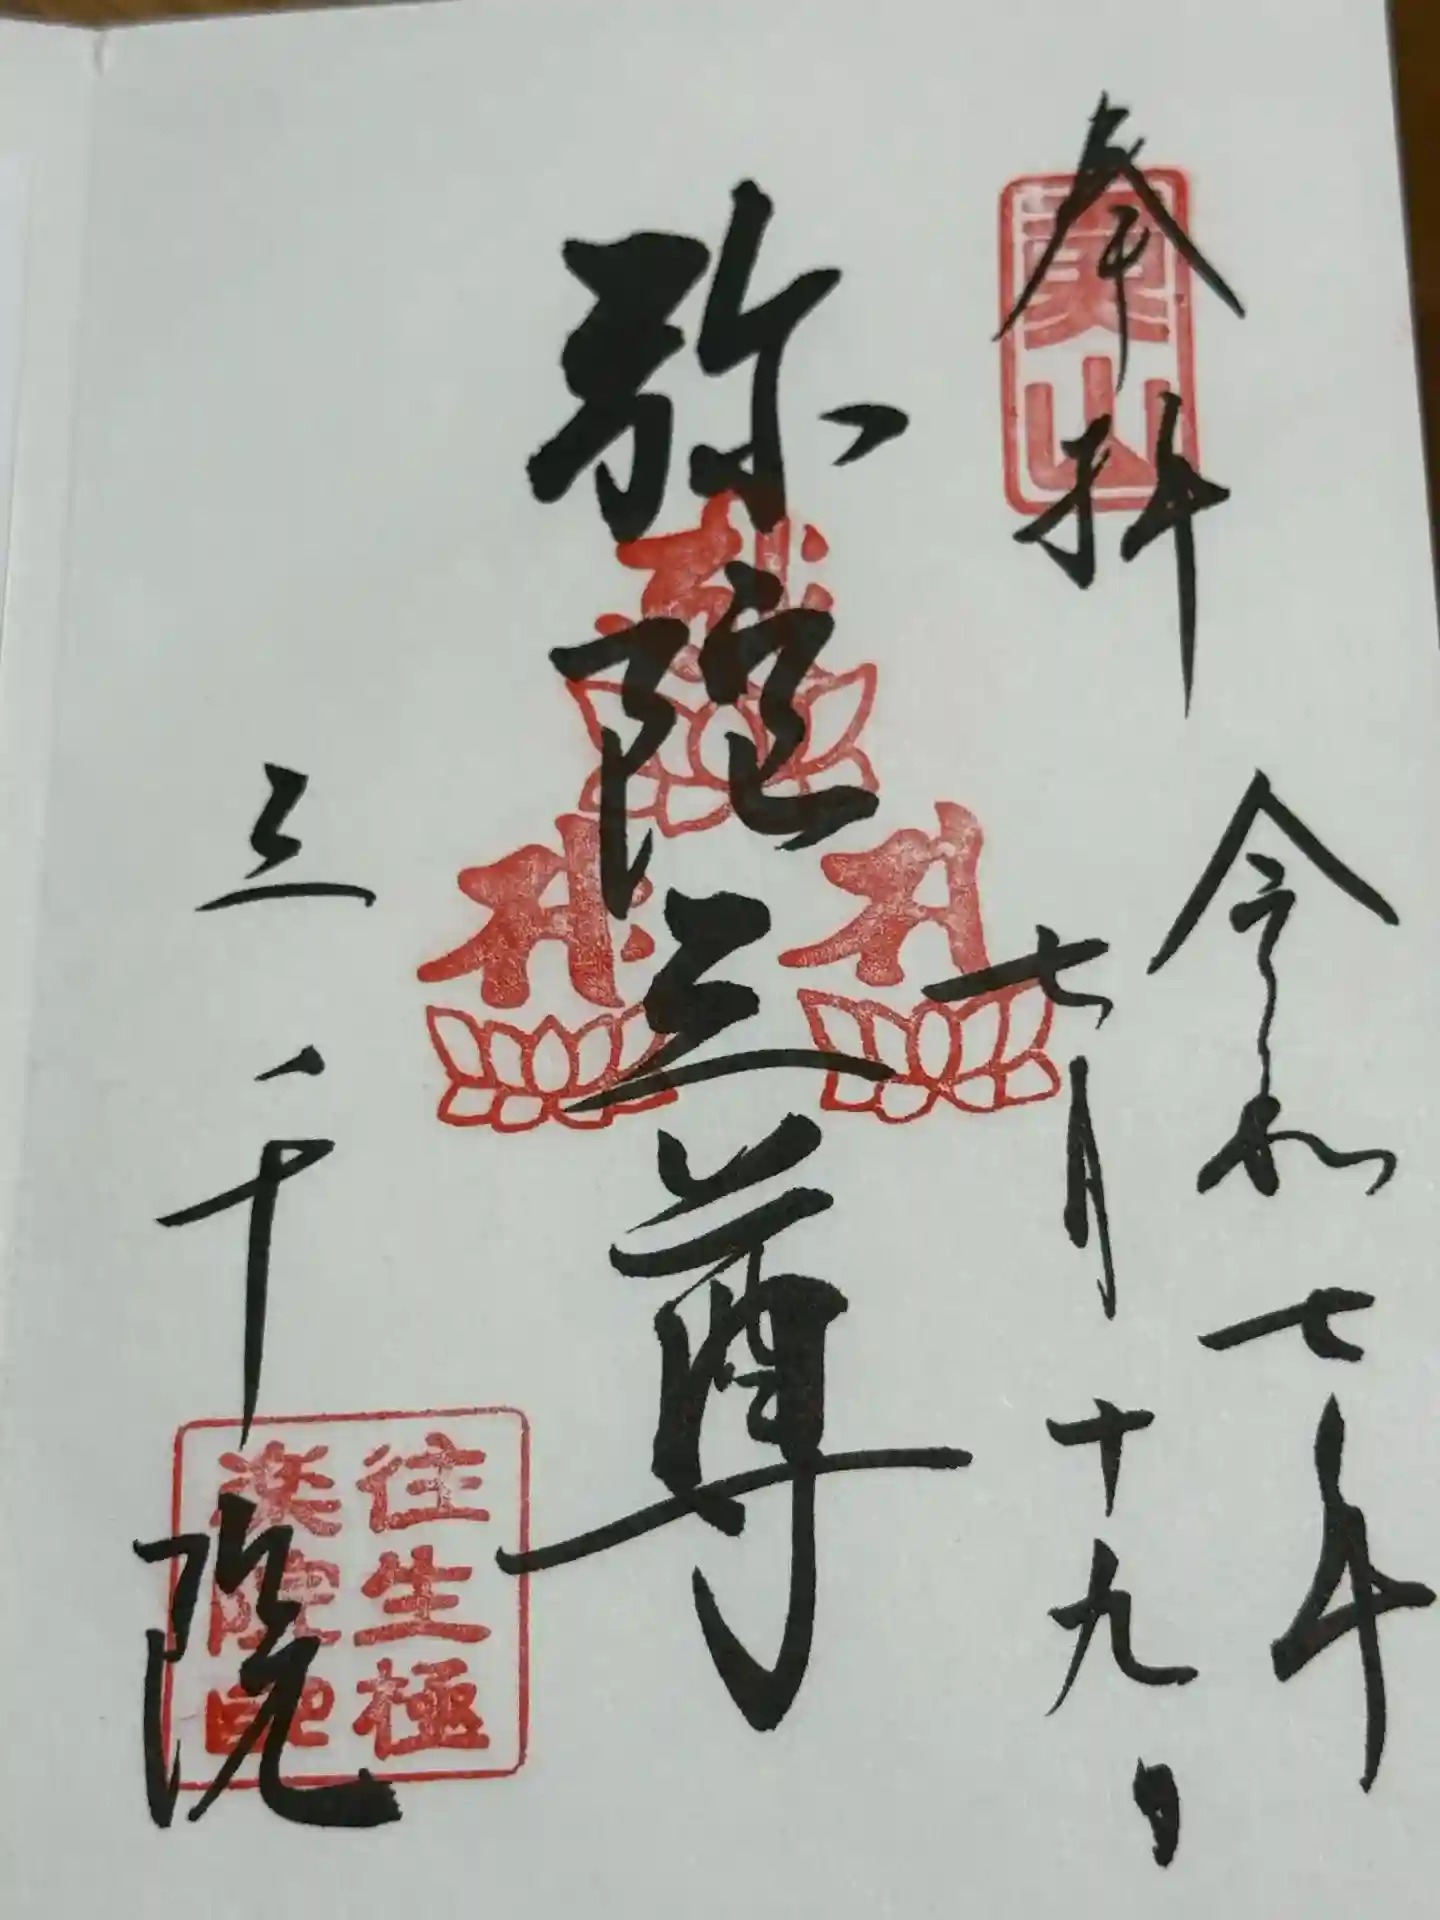 奉拝
山
令和七年
七月十九日
弥陀三尊
三千院
往生極
楽院印